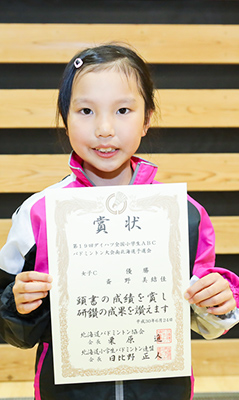 賞状
第19回ダイハツ全国小学生ABC
バドミントン大会南北海道予選会
女子C 優勝
野 美結佳
頭書の成績を賞し
研鑽の成果を讃えます
平成30年6月24日
北海道バドミントン協会
会長 栗原 通
北海道小学生バドミントン連盟
会長 日比野 正人